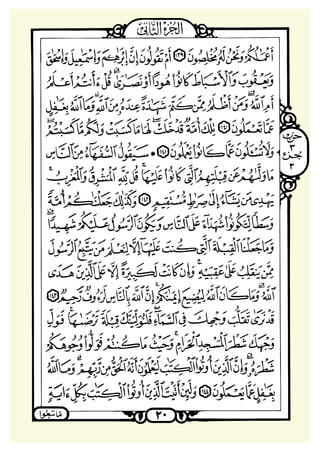 الجزء الثاني
أَعْمَٰلُكُمْ وَنَحْنُ لَهُۥ مُخْلِصُونَ ﴿١٣٩﴾ أَمْ تَقُولُونَ إِنَّ إِبْرَٰهِـۧمَ وَإِسْمَٰعِيلَ وَإِسْحَٰقَ
وَيَعْقُوبَ وَٱلْأَسْبَاطَ كَانُوا۟ هُودًا أَوْ نَصَٰرَىٰ ۗ قُلْ ءَأَنتُمْ أَعْلَمُ
أَمِ ٱللَّهُ ۗ وَمَنْ أَظْلَمُ مِمَّن كَتَمَ شَهَٰدَةً عِندَهُۥ مِنَ ٱللَّهِ ۗ وَمَا ٱللَّهُ بِغَٰفِلٍ
عَمَّا تَعْمَلُونَ ﴿١٤٠﴾ تِلْكَ أُمَّةٌ قَدْ خَلَتْ ۖ لَهَا مَا كَسَبَتْ وَلَكُم مَّا كَسَبْتُمْ ۖ
وَلَا تُسْـَٔلُونَ عَمَّا كَانُوا۟ يَعْمَلُونَ ﴿١٤١﴾ سَيَقُولُ ٱلسُّفَهَآءُ مِنَ ٱلنَّاسِ
مَا وَلَّىٰهُمْ عَن قِبْلَتِهِمُ ٱلَّتِى كَانُوا۟ عَلَيْهَا ۚ قُل لِّلَّهِ ٱلْمَشْرِقُ وَٱلْمَغْرِبُ ۚ
يَهْدِى مَن يَشَآءُ إِلَىٰ صِرَٰطٍ مُّسْتَقِيمٍ ﴿١٤٢﴾ وَكَذَٰلِكَ جَعَلْنَٰكُمْ أُمَّةً
وَسَطًا لِّتَكُونُوا۟ شُهَدَآءَ عَلَى ٱلنَّاسِ وَيَكُونَ ٱلرَّسُولُ عَلَيْكُمْ شَهِيدًا ۗ
وَمَا جَعَلْنَا ٱلْقِبْلَةَ ٱلَّتِى كُنتَ عَلَيْهَآ إِلَّا لِنَعْلَمَ مَن يَتَّبِعُ ٱلرَّسُولَ
مِمَّن يَنقَلِبُ عَلَىٰ عَقِبَيْهِ ۚ وَإِن كَانَتْ لَكَبِيرَةً إِلَّا عَلَى ٱلَّذِينَ هَدَى
ٱللَّهُ ۗ وَمَا كَانَ ٱللَّهُ لِيُضِيعَ إِيمَٰنَكُمْ ۚ إِنَّ ٱللَّهَ بِٱلنَّاسِ لَرَءُوفٌ رَّحِيمٌ ﴿١٤٣﴾
قَدْ نَرَىٰ تَقَلُّبَ وَجْهِكَ فِى ٱلسَّمَآءِ ۖ فَلَنُوَلِّيَنَّكَ قِبْلَةً تَرْضَىٰهَا ۚ فَوَلِّ
وَجْهَكَ شَطْرَ ٱلْمَسْجِدِ ٱلْحَرَامِ ۚ وَحَيْثُ مَا كُنتُمْ فَوَلُّوا۟ وُجُوهَكُمْ
شَطْرَهُۥ ۗ وَإِنَّ ٱلَّذِينَ أُوتُوا۟ ٱلْكِتَٰبَ لَيَعْلَمُونَ أَنَّهُ ٱلْحَقُّ مِن رَّبِّهِمْ ۗ وَمَا ٱللَّهُ
بِغَٰفِلٍ عَمَّا يَعْمَلُونَ ﴿١٤٤﴾ وَلَئِنْ أَتَيْتَ ٱلَّذِينَ أُوتُوا۟ ٱلْكِتَٰبَ بِكُلِّ ءَايَةٍ
حزب
٣
جزء
٢
٢٠
مَّا تَبِعُوا